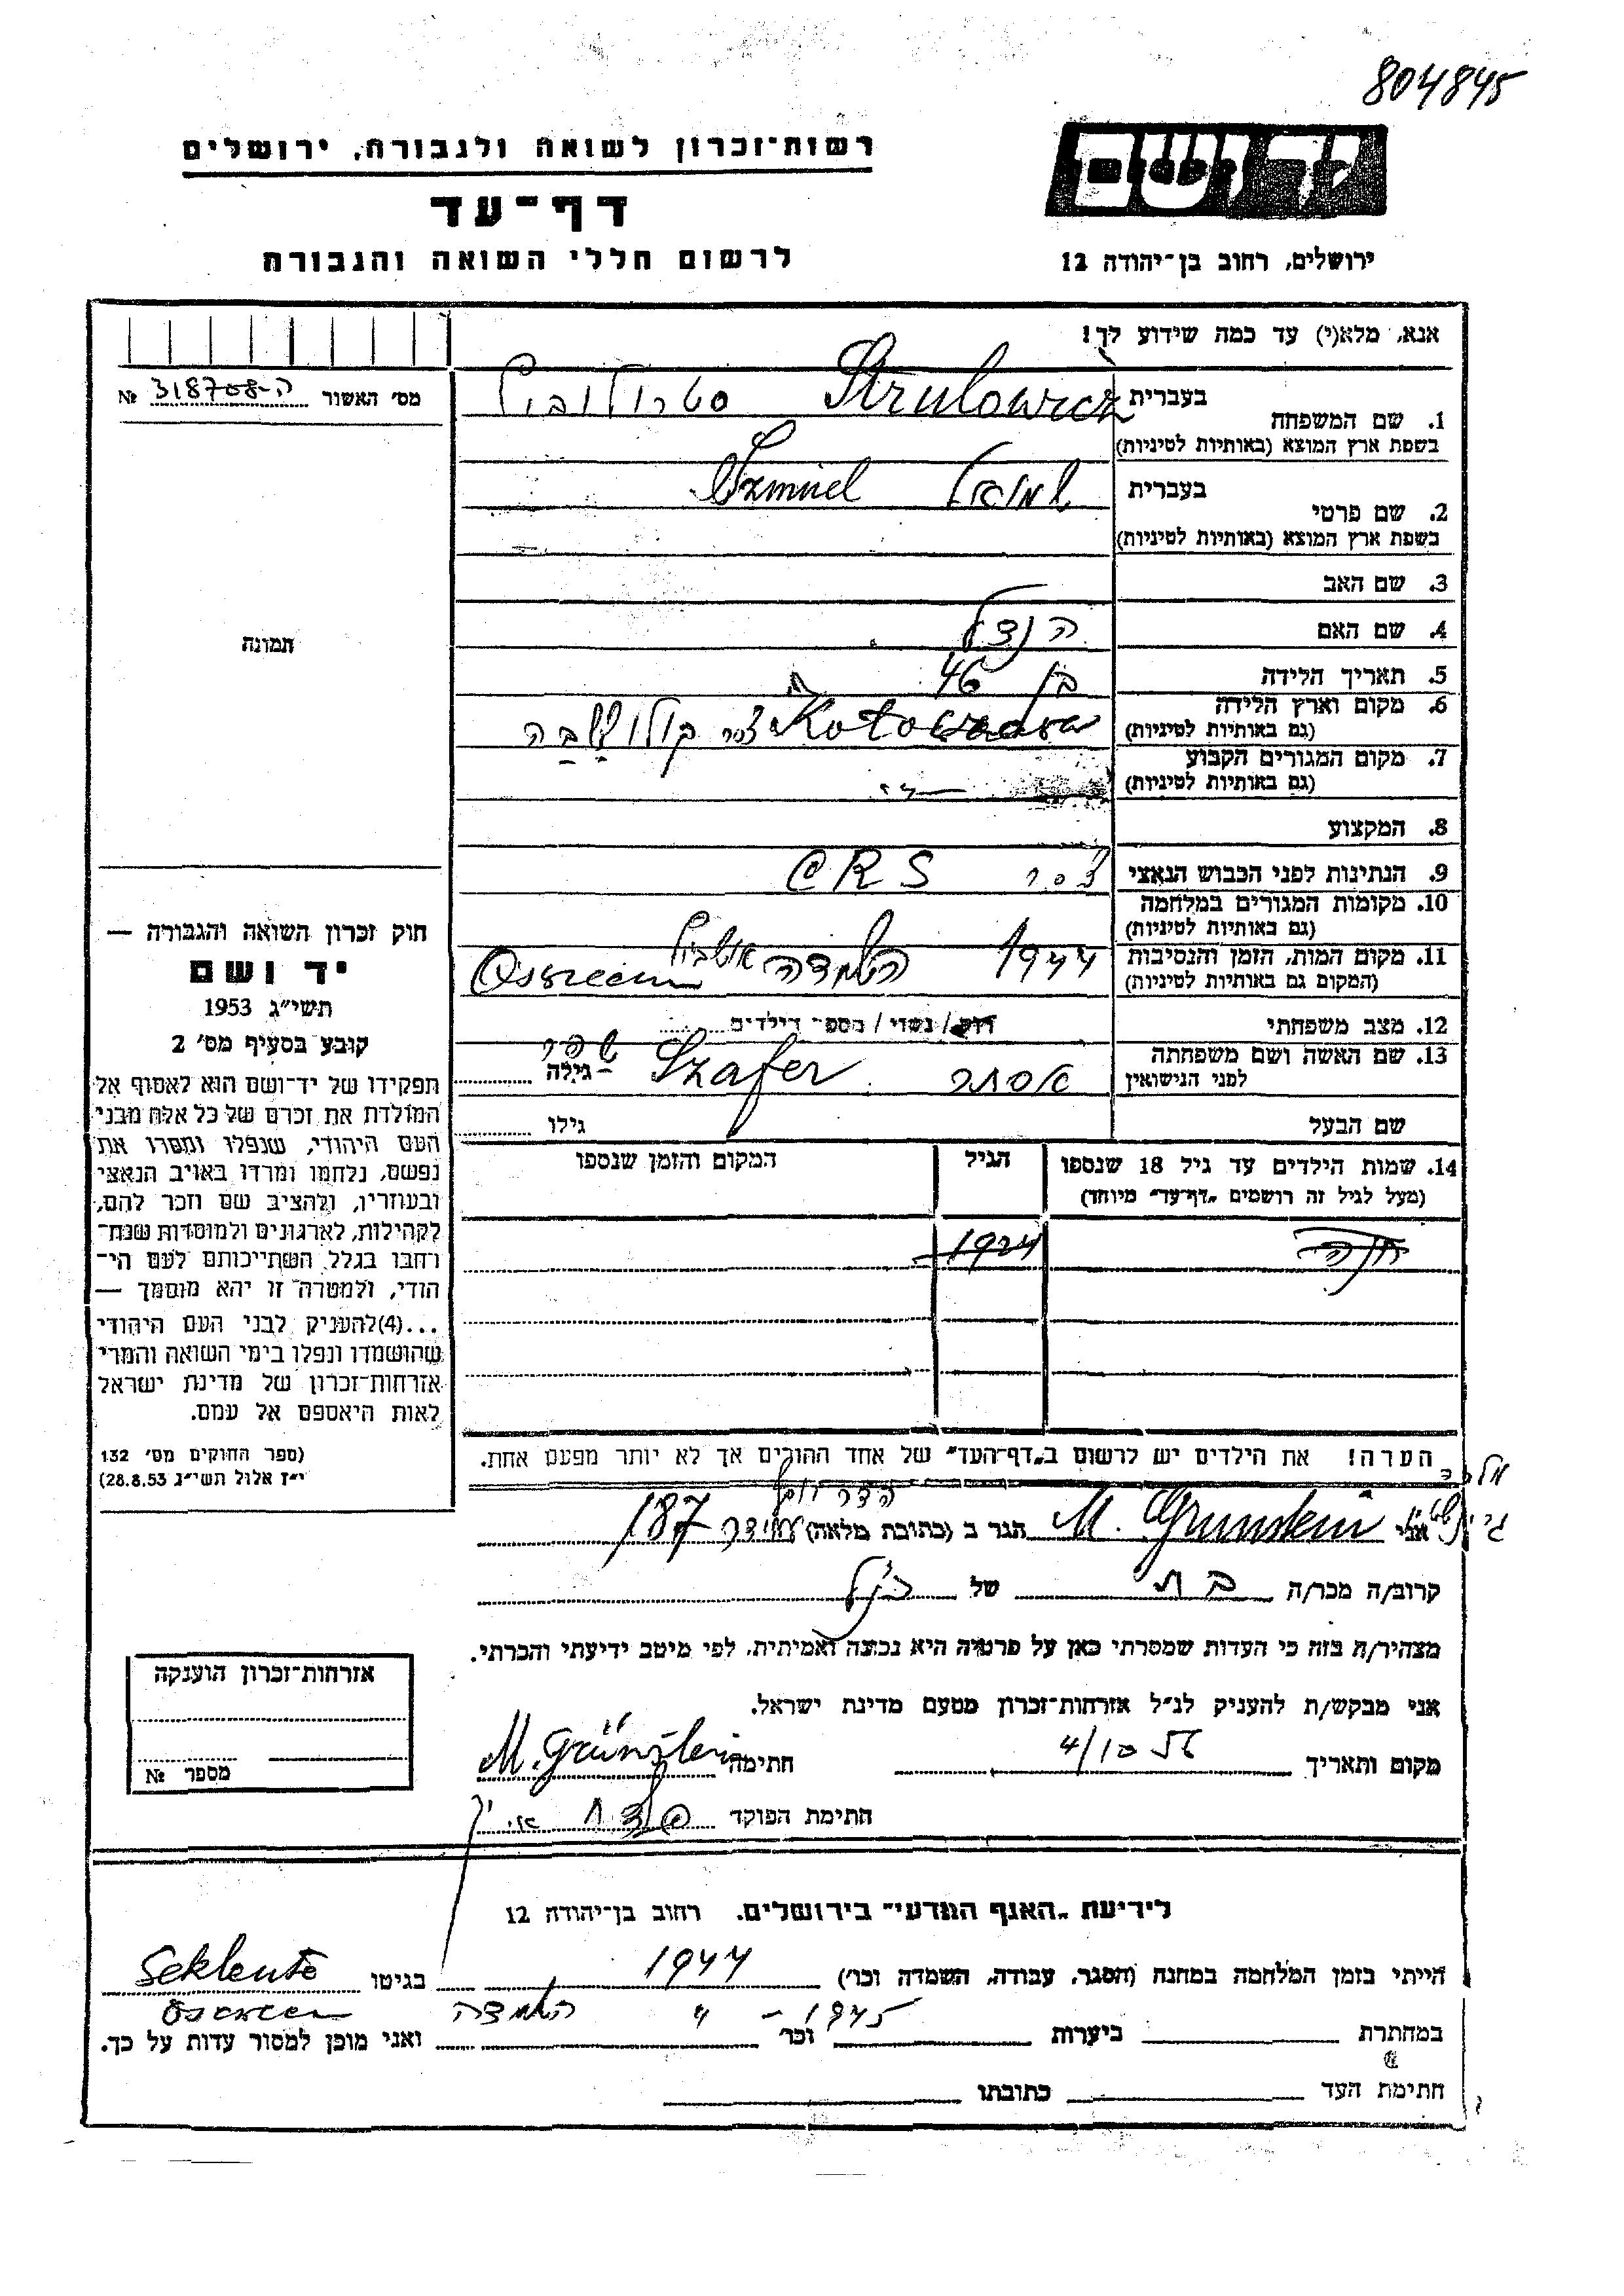 804845
יד ושם
רשות-זכרון לשואה ולגבורה, ירושלים
דף-עד
לרשום חללי השואה והגבורה
ירושלים, רחוב בן-יהודה 12
אנא, מלא(י) עד כמה שידוע לך!
מס' האשור № 318708-ה
תמונה
1. שם המשפחה
בעברית Strulowicz סטרולוביץ
בשפת ארץ המוצא (באותיות לטיניות)
2. שם פרטי
בעברית שמואל Szmuel
בשפת ארץ המוצא (באותיות לטיניות)
3. שם האב
4. שם האם הנדל
5. תאריך הלידה בן 46
6. מקום וארץ הלידה
(גם באותיות לטיניות)
7. מקום המגורים הקבוע
(גם באותיות לטיניות)
8. המקצוע
9. הנתינות לפני הכבוש הנאצי צ'כ' CRS
10. מקומות המגורים במלחמה
(גם באותיות לטיניות)
11. מקום המות, הזמן והנסיבות 1944 השמדה
(המקום גם באותיות לטיניות)
12. מצב משפחתי רוק / נשוי / מספר הילדים
13. שם האשה ושם משפחתה
לפני הנישואין אסתר Szafer שפר גילה
שם הבעל גילו
14. שמות הילדים עד גיל 18 שנספו
(מעל לגיל זה רושמים "דף-עד" מיוחד)
הגיל
המקום והזמן שנספו
חנה 1924
הערה! את הילדים יש לרשום ב"דף-העד" של אחד ההורים אך לא יותר מפעם אחת.
חוק זכרון השואה והגבורה —
יד ושם
תשי"ג 1953
קובע בסעיף מס' 2
תפקידו של יד-ושם הוא לאסוף אל
המולדת את זכרם של כל אלה מבני
העם היהודי, שנפלו ומסרו את
נפשם, נלחמו ומרדו באויב הנאצי
ובעוזריו, ולהציב שם וזכר להם,
לקהילות, לארגונים ולמוסדות שנח-
רחבו בגלל השתייכותם לעם הי-
הודי, ולמטרה זו יהא מוסמך —
...(4)להעניק לבני העם היהודי
שהושמדו ונפלו בימי השואה והמרי
אזרחות-זכרון של מדינת ישראל
לאות היאספם אל עמם.
(ספר החוקים מס' 132
י"ז אלול תשי"ג 28.8.53)
אני M. Grunstein הגר ב (כתובת מלאה) 187
קרוב/ה מכר/ה בת של הנ"ל
מצהיר/ה בזה כי העדות שמסרתי כאן על פרטיה היא נכונה ואמיתית, לפי מיטב ידיעתי והכרתי.
אני מבקש/ת להעניק לנ"ל אזרחות-זכרון מטעם מדינת ישראל.
מקום ותאריך 4/10 56 חתימה M. Grünstein
חתימת הפוקד
אזרחות-זכרון הוענקה
מספר №
לידיעת "האגף המדעי" בירושלים, רחוב בן-יהודה 12
הייתי בזמן המלחמה במחנה (הסגר, עבודה, השמדה וכו') 1944 בגיטו
1945 - " השמדה
במחתרת ביערות וכו' ואני מוכן למסור עדות על כך.
חתימת העד כתובתו